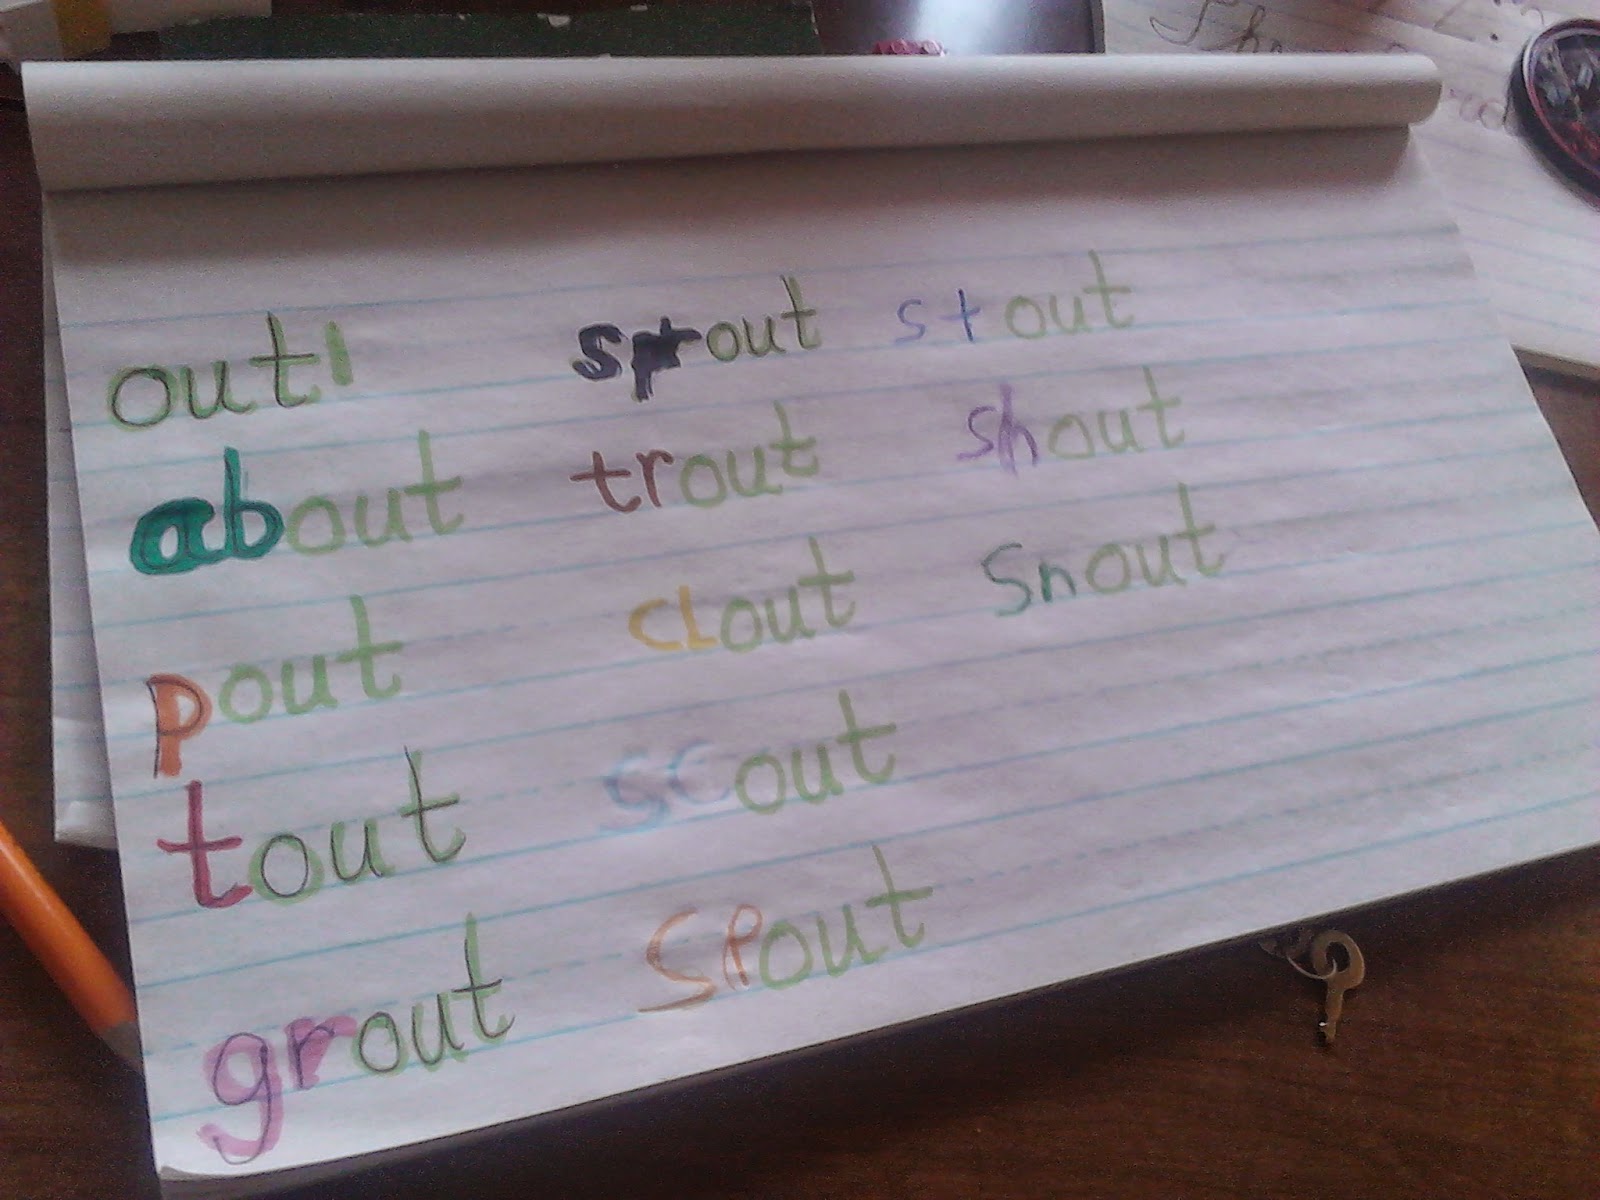 out sprout stout
about trout shout
pout clout snout
tout scout
grout spout